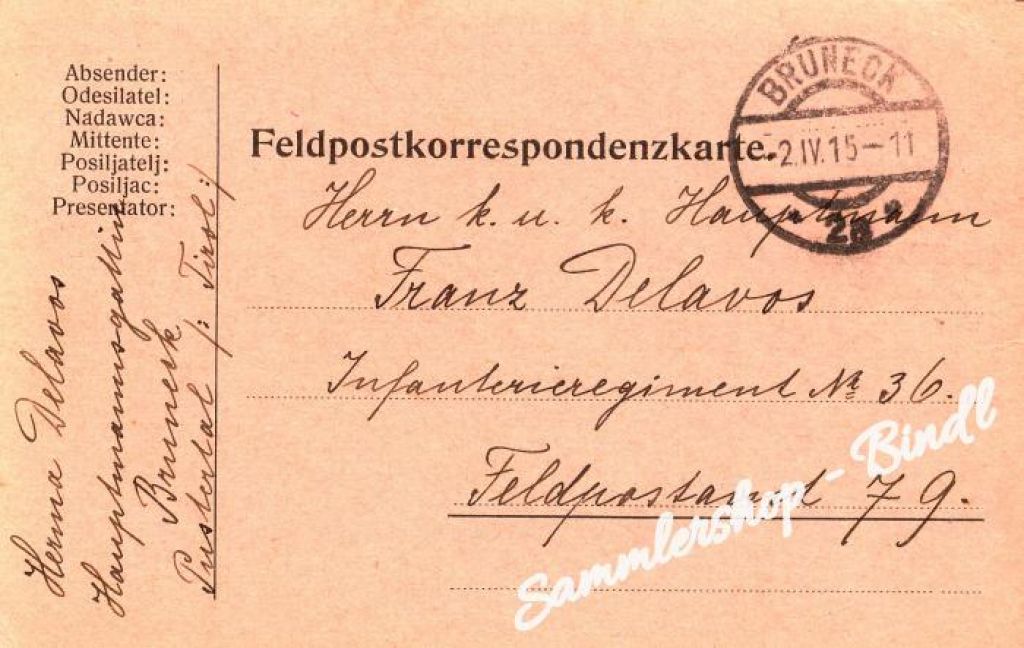 Absender:
Odesilatel:
Nadawca:
Mittente:
Posiljatelj:
Posiljac:
Presentator:
Herma Delavos
Hauptmannsgattin
Bruneck
Pustertal /: Tirol :/
Feldpostkorrespondenzkarte.
BRUNECK
-2.IV.15-11
2a
Herrn k. u. k. Hauptmann
Franz Delavos
Infanterieregiment № 36.
Feldpostamt 79.
Sammlershop - Bindl